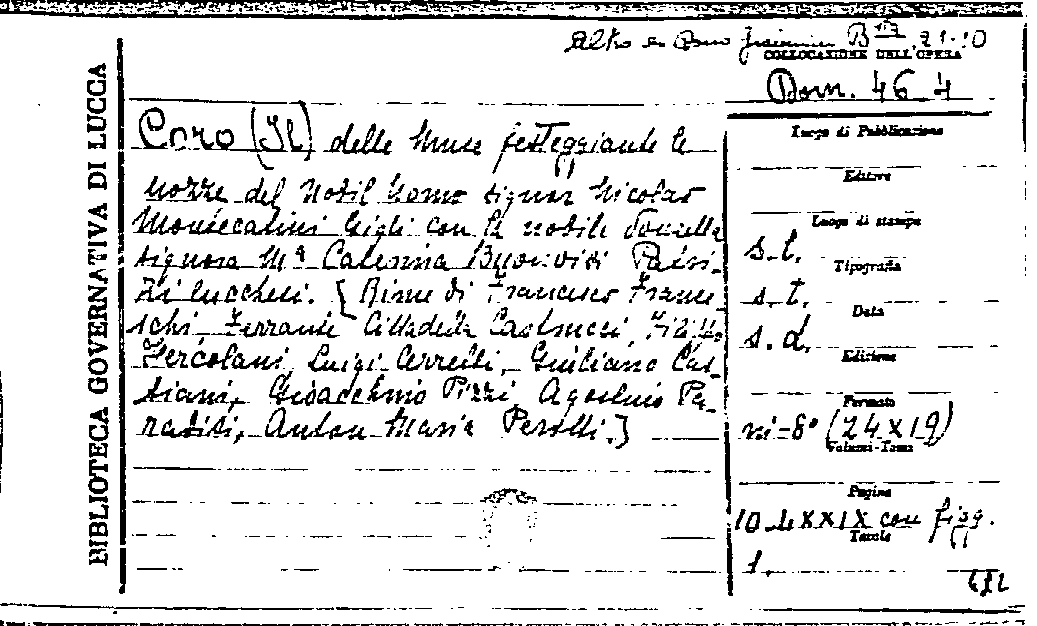 BIBLIOTECA GOVERNATIVA DI LUCCA
Altro es B 21.10
COLLOCAZIONE DELL'OPERA
Born. 46 4
Coro (Il) delle Muse festeggiante le
nozze del Nobil Uomo signor Nicolao
Montecatini Gigli con la nobile Donzella
signora Mª Caterina Buonvisi Patri-
zi lucchesi. [Rime di Francesco France-
schi, Ferrante Cittadella Castrucci,
Hercolani, Luigi Cerretti, Giuliano Cas-
siani, Gioacchino Pizzi, Agostino Pa-
radisi, Anton Maria Perotti.]
Luogo di Pubblicazione
Editore
Luogo di stampa
s.l.
Tipografia
s.t.
Data
s.d.
Edizione
Formato
in-8° (24x19)
Volumi-Tomo
Pagine
10 LXXIX con figg.
Tavole
1.